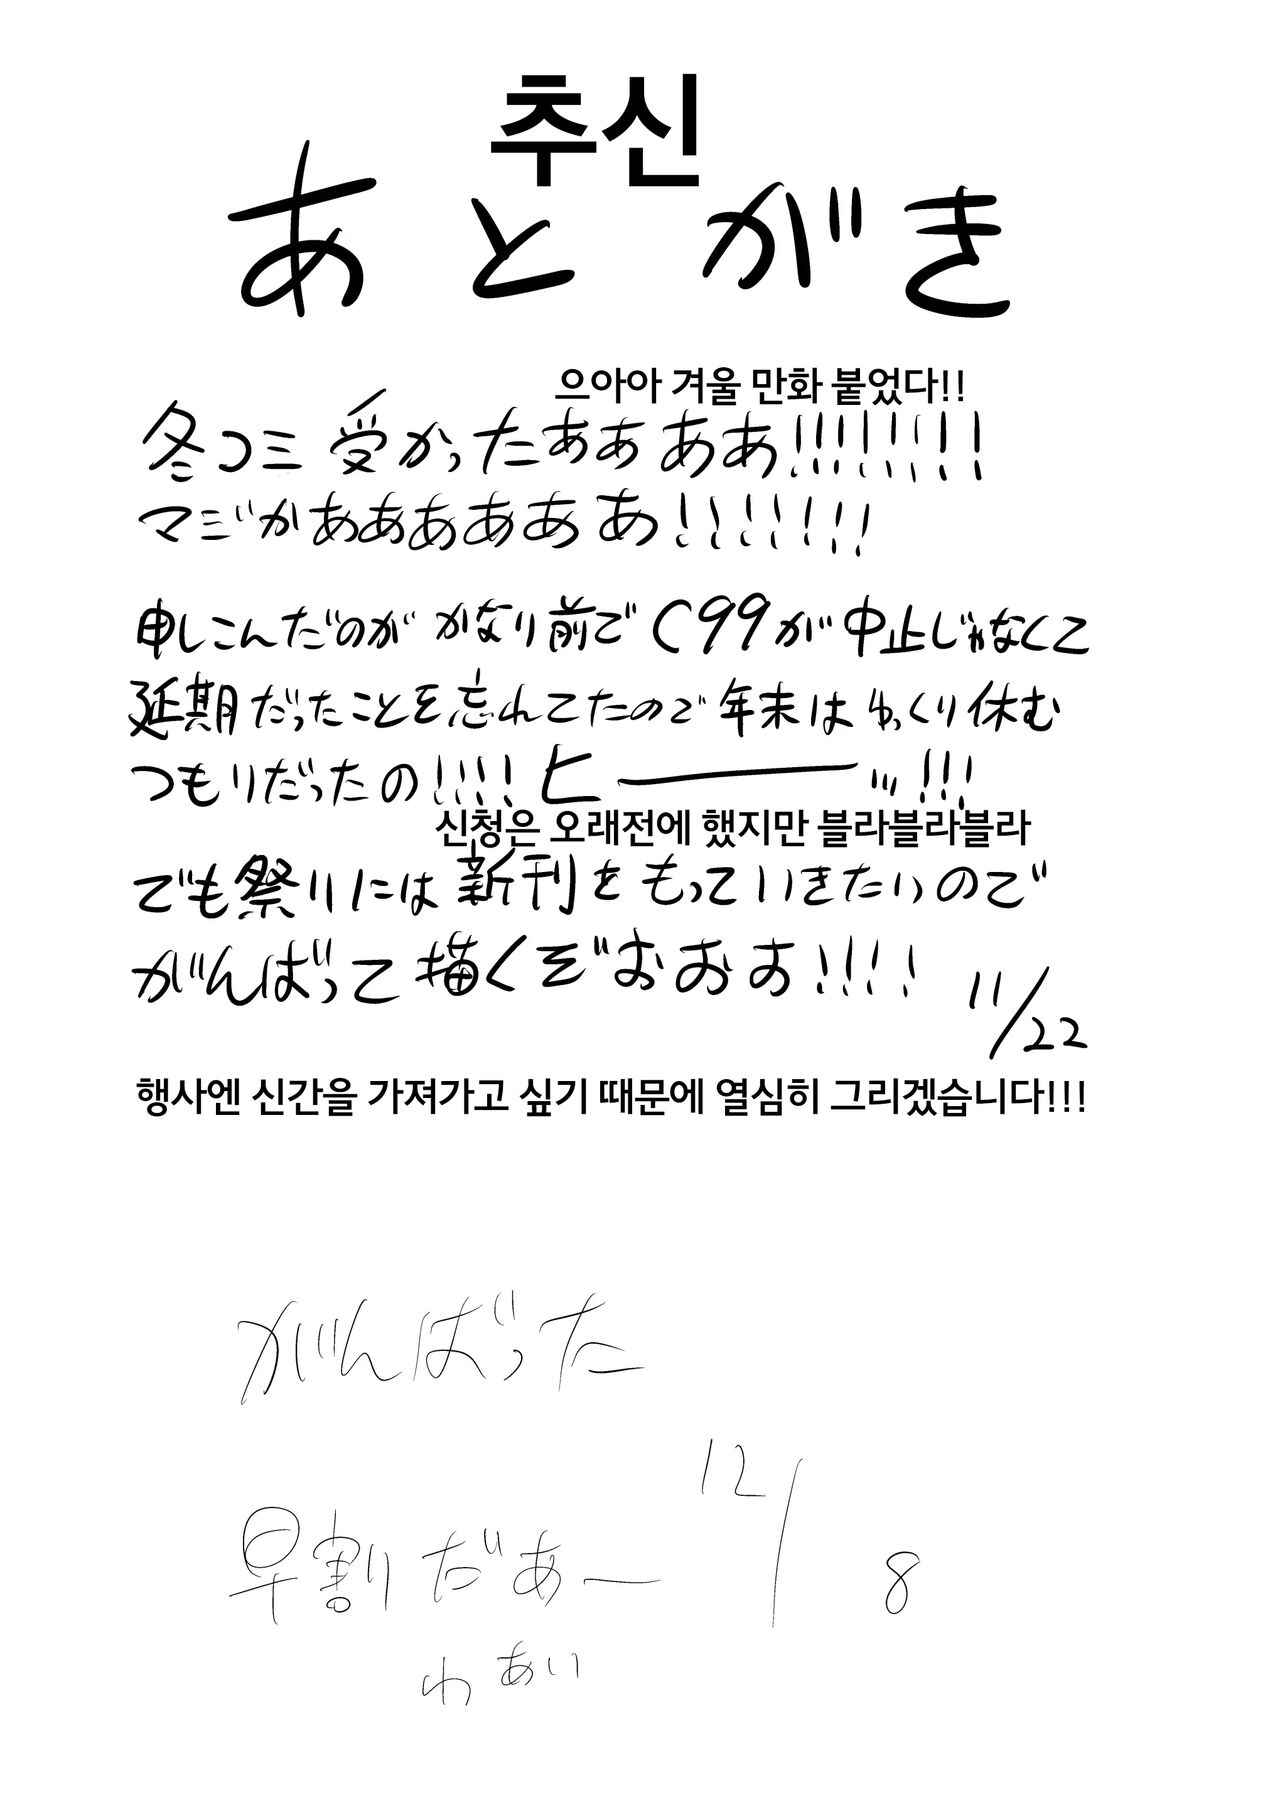 추신
あとがき
으아아 겨울 만화 붙었다!!
冬コミ受かったぁぁぁあ!!!!!!!!
マジかあぁあぁあぁ!!!!!!!
申しこんだのがかなり前でC99が中止じゃなくて
延期だったことを忘れてたので年末はゆっくり休む
つもりだったの!!!!ヒーーッ!!!
신청은 오래전에 했지만 블라블라블라
でも祭りには新刊をもっていきたいので
がんばって描くぞおおお!!!!
11/22
행사엔 신간을 가져가고 싶기 때문에 열심히 그리겠습니다!!!
がんばった
12/8
早割だあー
わあい